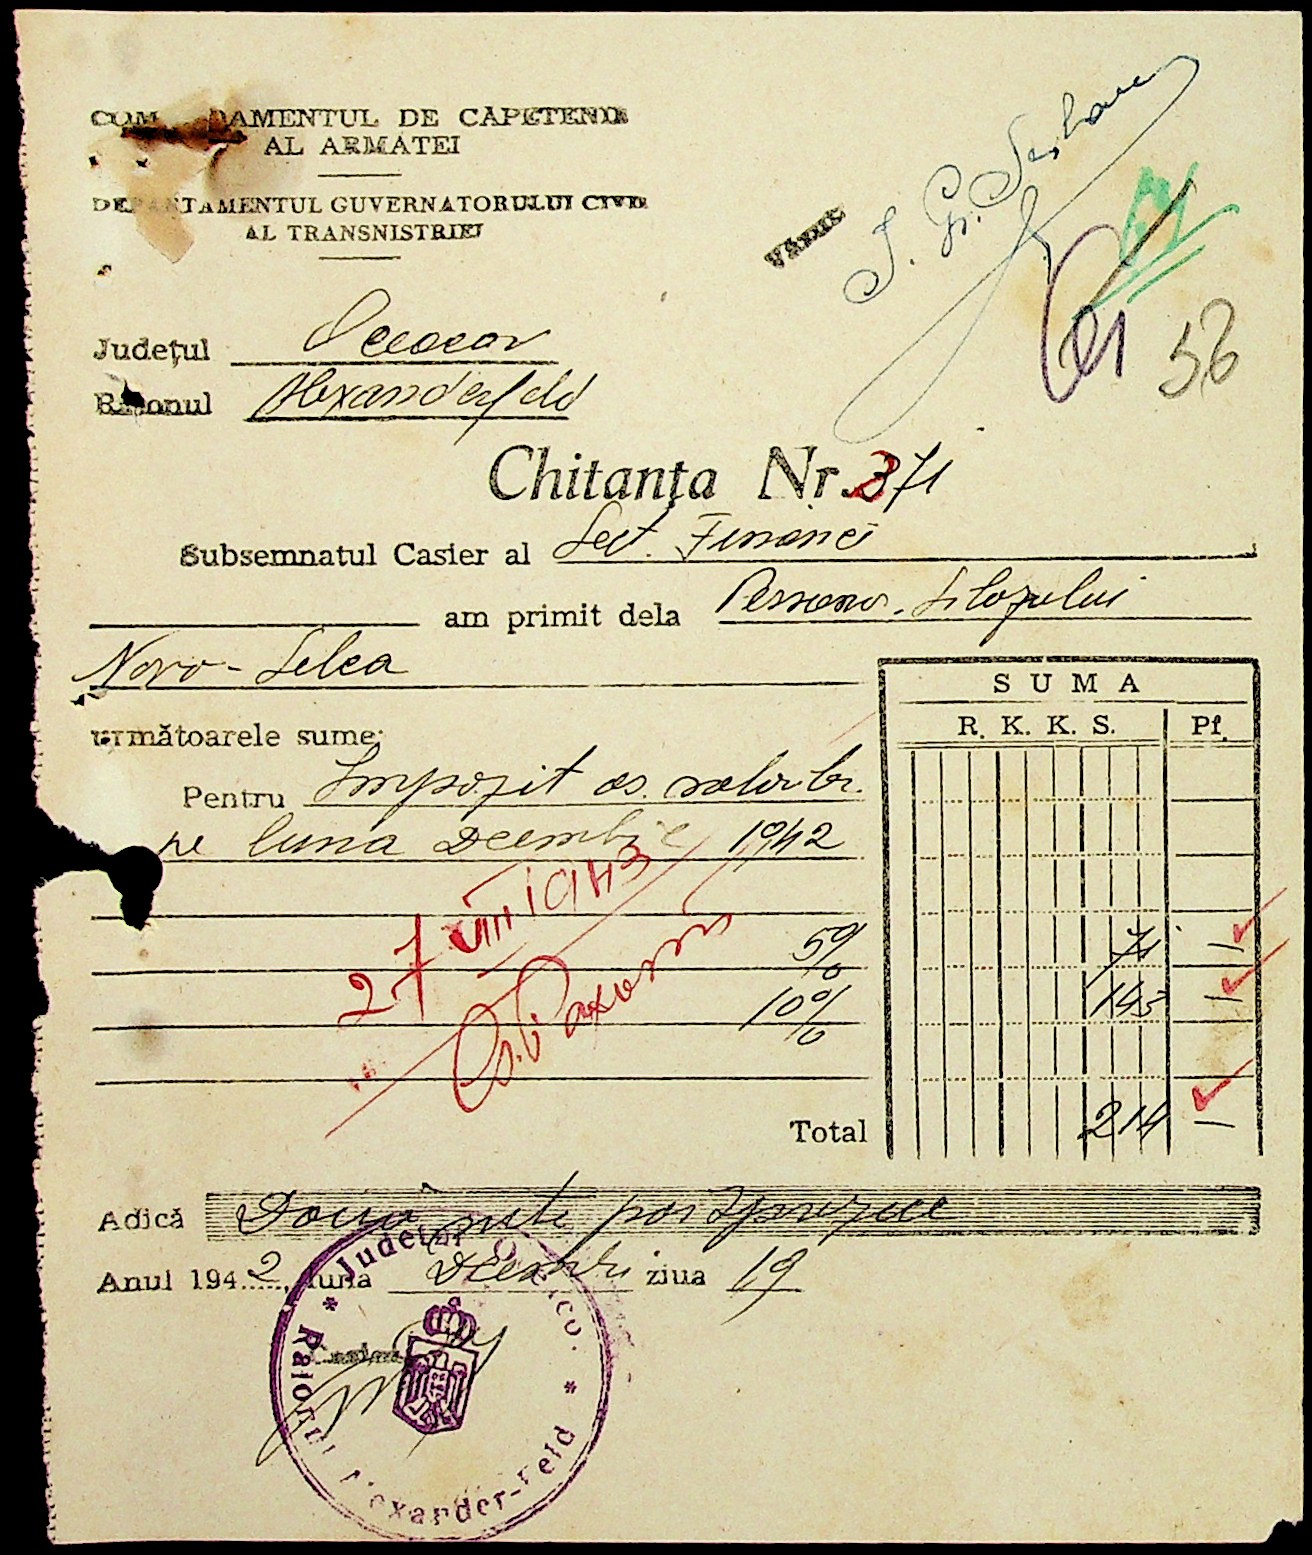 COMANDAMENTUL DE CĂPETENIE
AL ARMATEI
DEPARTAMENTUL GUVERNATORULUI CIVIL
AL TRANSNISTRIEI
56
Judeţul Oceacov
Raionul Alexanderfeld
Chitanţa Nr. 371
Subsemnatul Casier al Sect. Financi
am primit dela Persona. Silozului
Novo-Selca
SUMA
R. K. K. S. Pf.
următoarele sume:
Pentru Impozit as.
pe luna Decembrie 1942
27 VIII 1943
5% 71 —
10% 143 —
Total 214 —
Adică Doua sute
Anul 1942, luna Decembrie ziua 19
Casier
Judeţul Oceaco.
* Raionul Alexander-Feld *